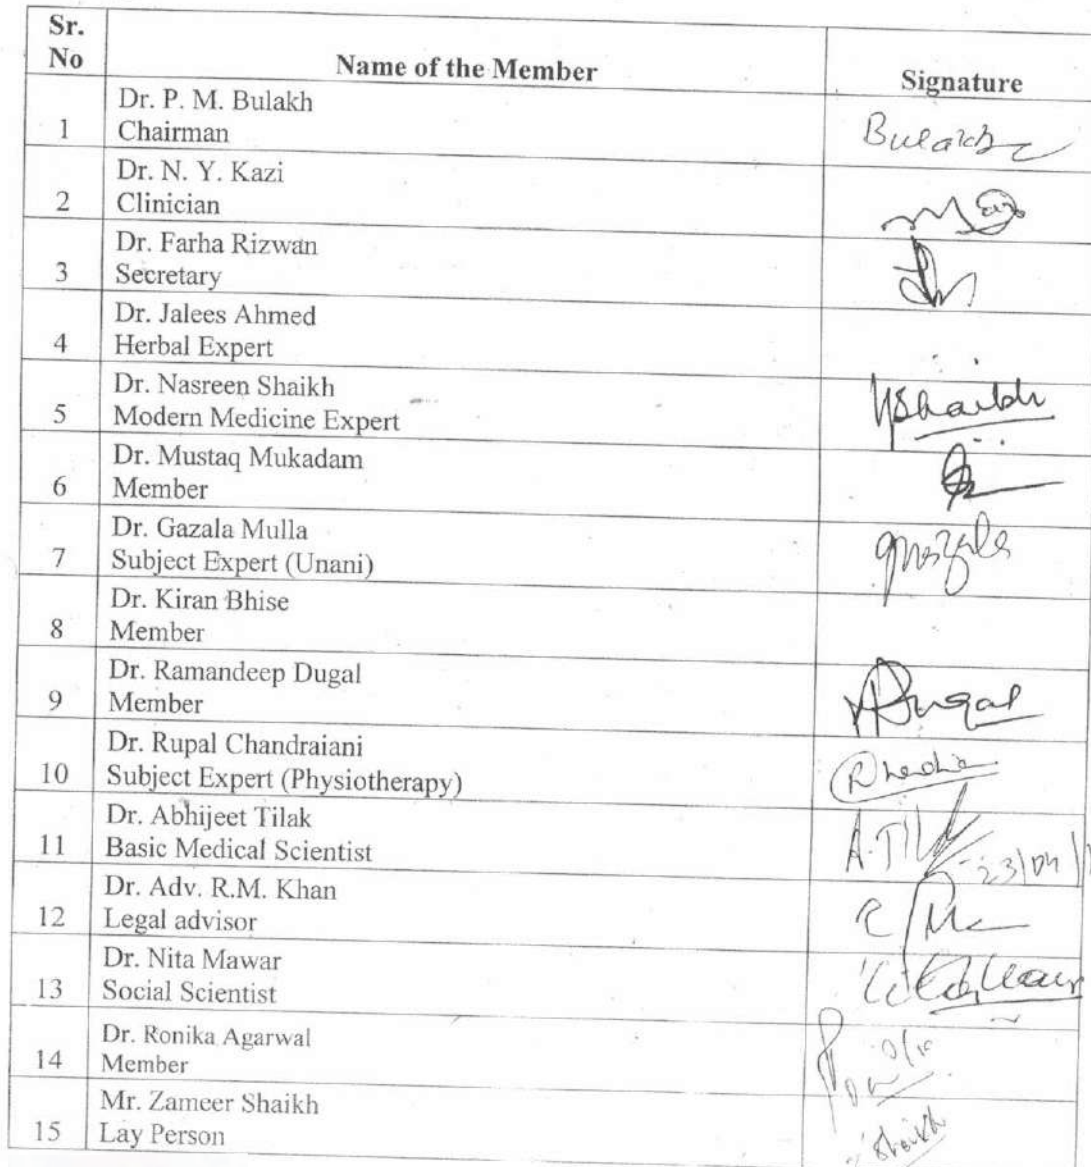 Sr.
No
Name of the Member
Signature
Dr. P. M. Bulakh
1
Chairman
Bulakh
Dr. N. Y. Kazi
2
Clinician
Dr. Farha Rizwan
3
Secretary
Dr. Jalees Ahmed
4
Herbal Expert
Dr. Nasreen Shaikh
5
Modern Medicine Expert
NShaikh
Dr. Mustaq Mukadam
6
Member
Dr. Gazala Mulla
7
Subject Expert (Unani)
Dr. Kiran Bhise
8
Member
Dr. Ramandeep Dugal
9
Member
Dugal
Dr. Rupal Chandraiani
10
Subject Expert (Physiotherapy)
Dr. Abhijeet Tilak
11
Basic Medical Scientist
23/04/1
Dr. Adv. R.M. Khan
12
Legal advisor
Dr. Nita Mawar
13
Social Scientist
Dr. Ronika Agarwal
14
Member
Mr. Zameer Shaikh
15
Lay Person
Shaikh